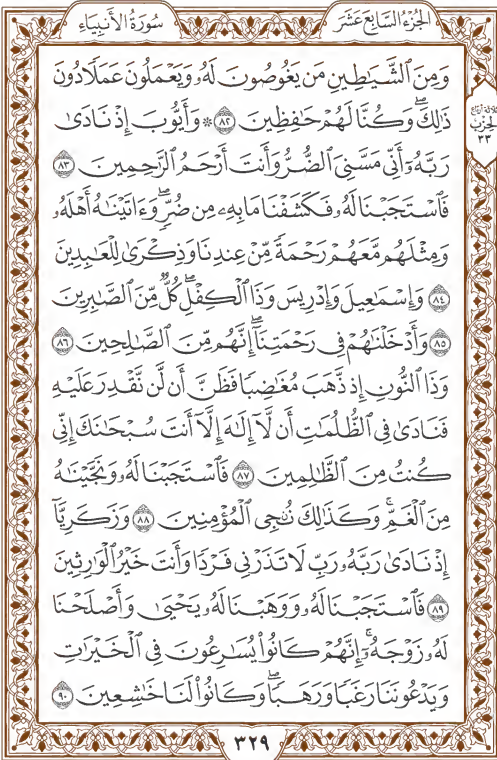 الجُزْءُ السَّابِعَ عَشَرَ
سُورَةُ الأَنبِيَاءِ
وَمِنَ ٱلشَّيَٰطِينِ مَن يَغُوصُونَ لَهُۥ وَيَعْمَلُونَ عَمَلًا دُونَ
ذَٰلِكَۖ وَكُنَّا لَهُمْ حَٰفِظِينَ ٨٢ ۞ وَأَيُّوبَ إِذْ نَادَىٰ
رَبَّهُۥٓ أَنِّي مَسَّنِيَ ٱلضُّرُّ وَأَنتَ أَرْحَمُ ٱلرَّٰحِمِينَ ٨٣
فَٱسْتَجَبْنَا لَهُۥ فَكَشَفْنَا مَا بِهِۦ مِن ضُرٍّۖ وَءَاتَيْنَٰهُ أَهْلَهُۥ
وَمِثْلَهُم مَّعَهُمْ رَحْمَةً مِّنْ عِندِنَا وَذِكْرَىٰ لِلْعَٰبِدِينَ
٨٤ وَإِسْمَٰعِيلَ وَإِدْرِيسَ وَذَا ٱلْكِفْلِۖ كُلٌّ مِّنَ ٱلصَّٰبِرِينَ
٨٥ وَأَدْخَلْنَٰهُمْ فِي رَحْمَتِنَآۖ إِنَّهُم مِّنَ ٱلصَّٰلِحِينَ ٨٦
وَذَا ٱلنُّونِ إِذ ذَّهَبَ مُغَٰضِبًا فَظَنَّ أَن لَّن نَّقْدِرَ عَلَيْهِ
فَنَادَىٰ فِي ٱلظُّلُمَٰتِ أَن لَّآ إِلَٰهَ إِلَّآ أَنتَ سُبْحَٰنَكَ إِنِّي
كُنتُ مِنَ ٱلظَّٰلِمِينَ ٨٧ فَٱسْتَجَبْنَا لَهُۥ وَنَجَّيْنَٰهُ
مِنَ ٱلْغَمِّۚ وَكَذَٰلِكَ نُـۨجِي ٱلْمُؤْمِنِينَ ٨٨ وَزَكَرِيَّآ
إِذْ نَادَىٰ رَبَّهُۥ رَبِّ لَا تَذَرْنِي فَرْدًا وَأَنتَ خَيْرُ ٱلْوَٰرِثِينَ
٨٩ فَٱسْتَجَبْنَا لَهُۥ وَوَهَبْنَا لَهُۥ يَحْيَىٰ وَأَصْلَحْنَا
لَهُۥ زَوْجَهُۥٓۚ إِنَّهُمْ كَانُوا۟ يُسَٰرِعُونَ فِي ٱلْخَيْرَٰتِ
وَيَدْعُونَنَا رَغَبًا وَرَهَبًاۖ وَكَانُوا۟ لَنَا خَٰشِعِينَ ٩٠
ثلاثة أرباع
الحزب
٣٣
٣٢٩